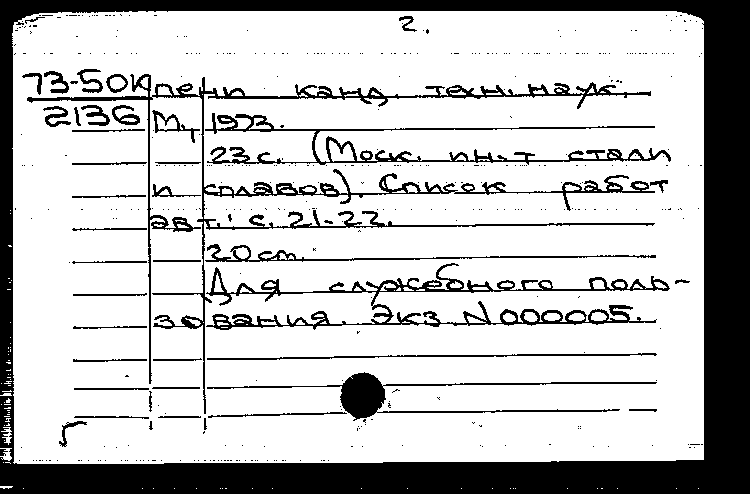 2.
73-50К пени канд. техн. наук.
2136 М., 1973.
23 с. (Моск. ин-т стали
и сплавов). Список работ
авт.: с. 21-22.
20 cm.
Для служебного поль-
зования. Экз. N000005.